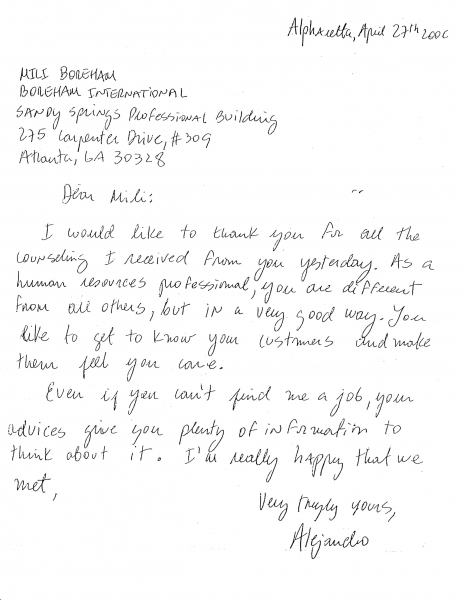 Alpharetta, April 27th 2006
MILI BOREHAM
BOREHAM INTERNATIONAL
SANDY SPRINGS PROFESSIONAL BUILDING
275 Carpenter Drive, #309
Atlanta, GA 30328
Dear Mili:
I would like to thank you for all the
counseling I received from you yesterday. As a
human resources professional, you are different
from all others, but in a very good way. You
like to get to know your customers and make
them feel you care.
Even if you can't find me a job, your
advices give you plenty of information to
think about it. I'm really happy that we
met,
Very truly yours,
Alejandro